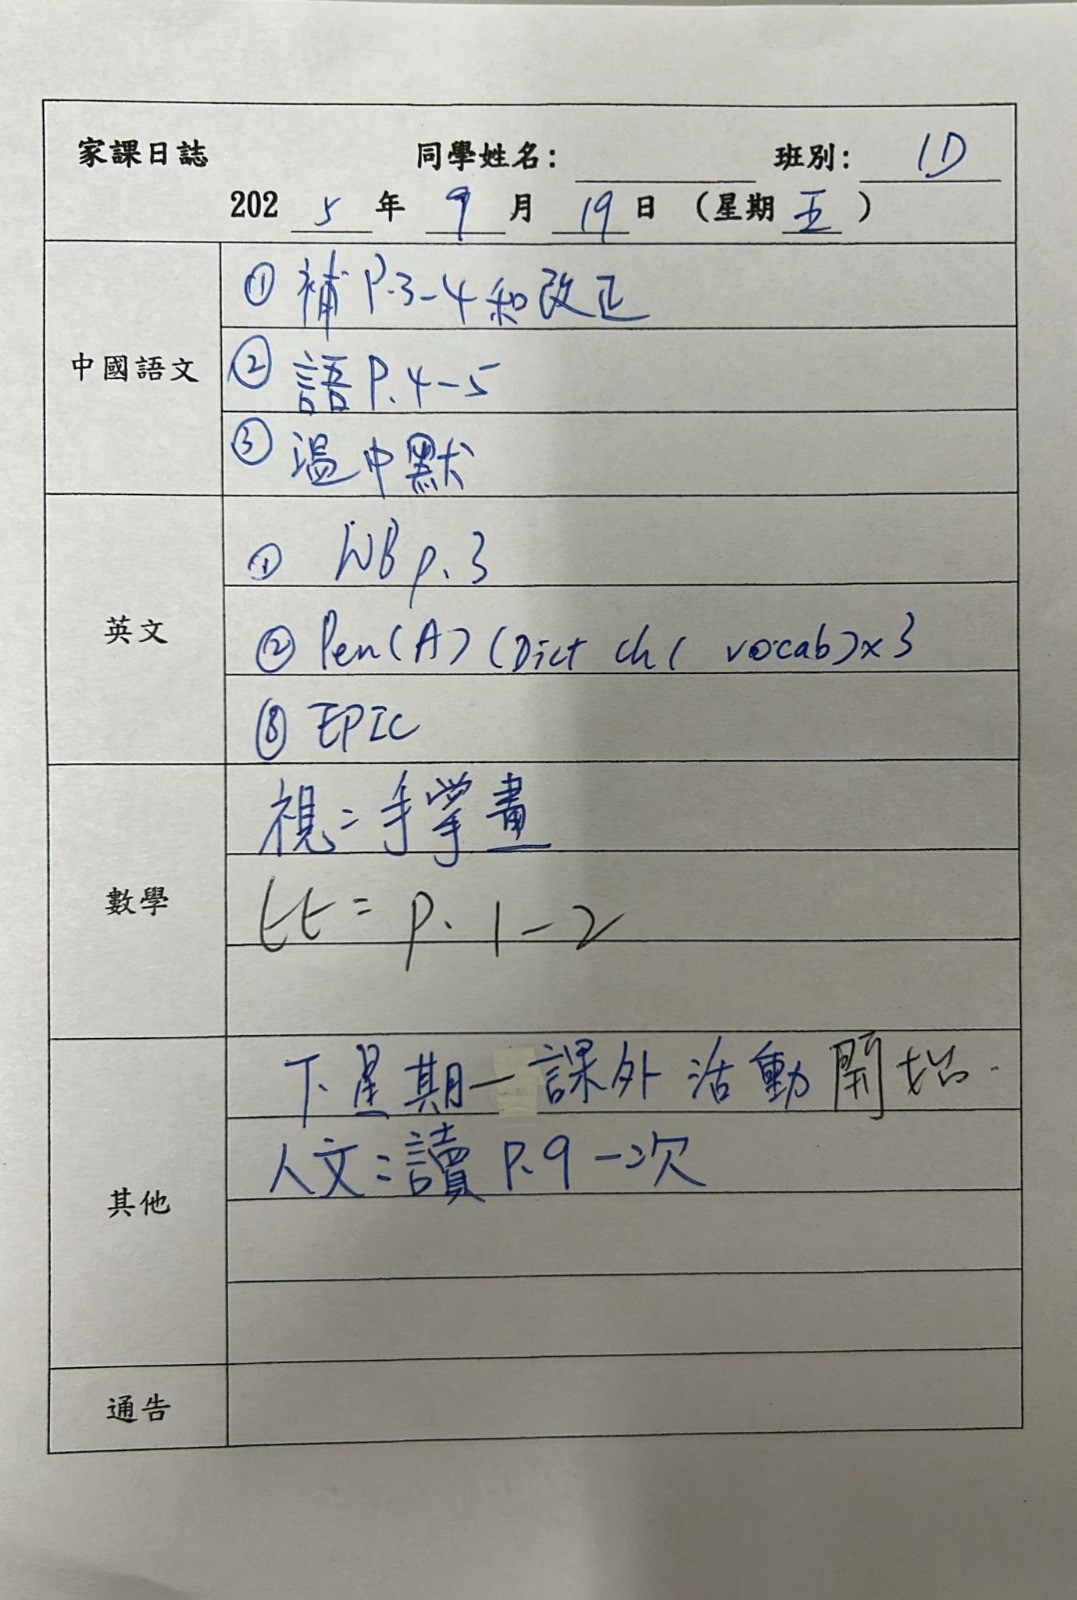 家課日誌 同學姓名: 班別: 1D
2025年9月19日(星期五)
中國語文
① 補P.3-4和改正
② 語P.4-5
③ 溫中默
英文
① WB p.3
② Pen(A) (Dict ch1 vocab)x3
③ EPIC
數學
視=手掌畫
tt= p.1-2
其他
下星期一課外活動開始.
人文:讀P.9一次
通告